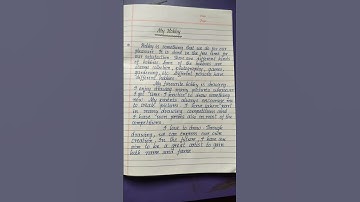 My Hobby
Hobby is something that we do for our
pleasure. It is done in the free time for
our satisfaction. There are different kinds
of hobbies. Some of the hobbies are
stamp collection, photography, games,
gardening, etc. Different persons have
different hobbies.
My favourite hobby is drawing.
I enjoy drawing many pictures whenever
I get time. I practice to draw something
new. My parents always encourage me
to create pictures. I have taken part
in many drawing competitions and
I have won prizes also in most of the
competitions.
I love to draw. Through
drawing, we can express our own
creation. In the future, I have an
aim to be a great artist to gain
both name and fame.